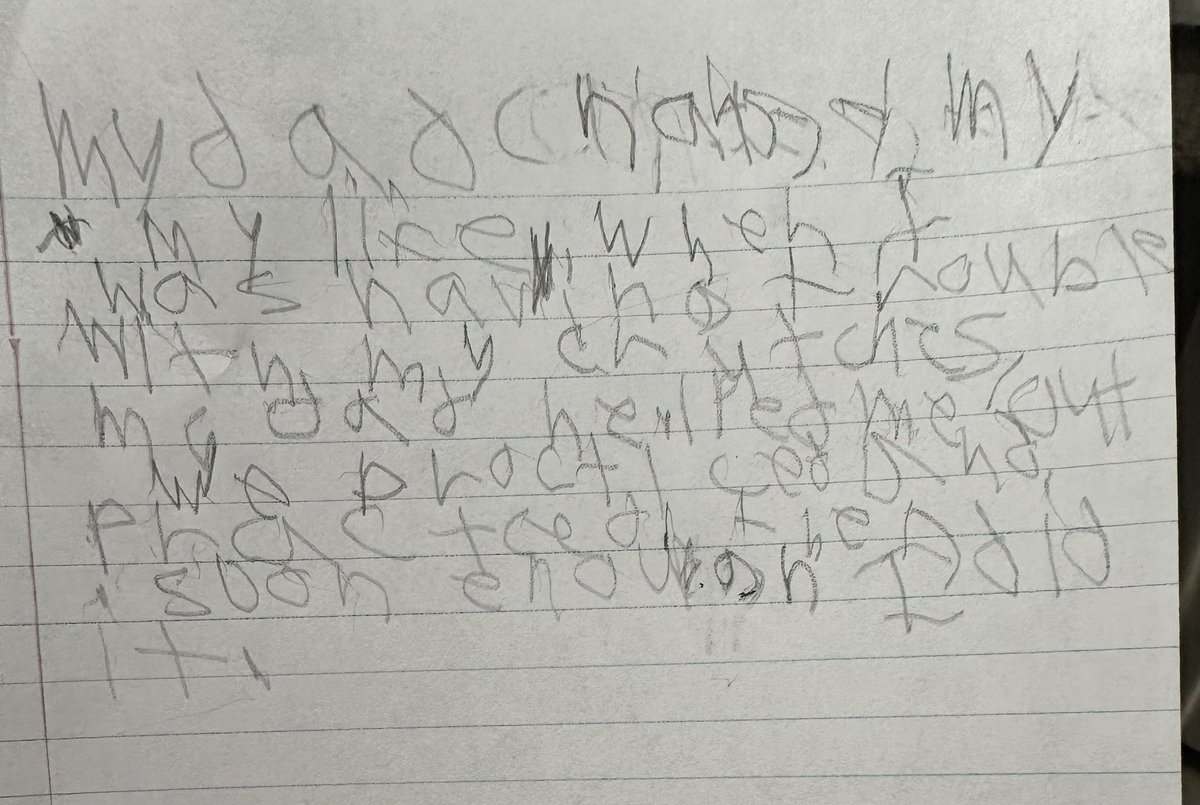 My dad changed my
my life when I
was having trouble
with my ch tches
my dad helped me out
we practiced and
practeed
soon enough I did
it.